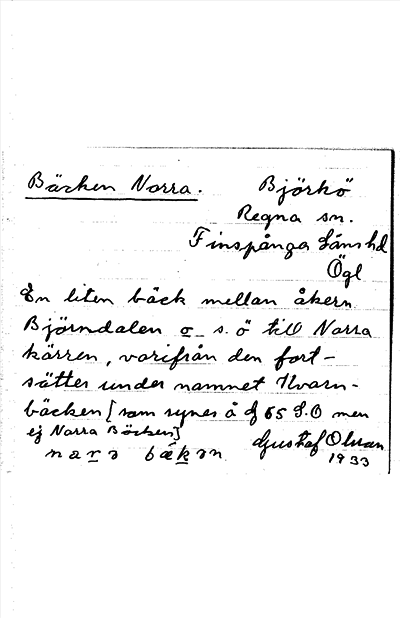 Bäcken Norra.
Björkö
Regna sn.
Finspånga läns hd
Ögl
En liten bäck mellan åkern
Björndalen o s. ö till Norra
kärren, varifrån den fort-
sätter under namnet Kvarn-
bäcken [som synes å df 65 S.O men
ej Norra Bäcken]
Gustaf Olsson
1933